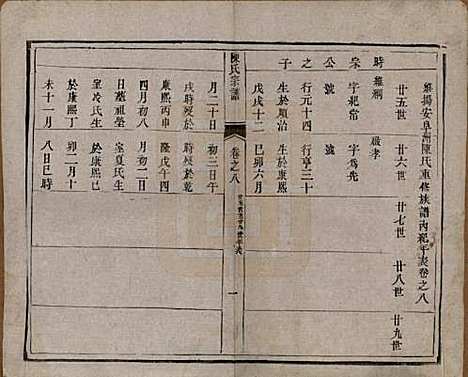 維揚安阜洲陳氏重修族譜丙祀年表卷之八
廿五世
廿六世
廿七世
廿八世
廿九世
時雍嗣
宗字祀常
公號
之行元十四
子生於順治
戊戌十二
月二十日
戌時歿於
康熙
四月初八
日葬祖塋
室冷氏生
於康熙丁
未十一月
嚴孝
字為先
號
行亨三十
生於康熙
己卯六月
初三日午
時歿於乾
隆戊午四
月初二日
室夏氏生
於康熙己
卯二月十
八日巳時
陳氏宗譜
卷之八
一